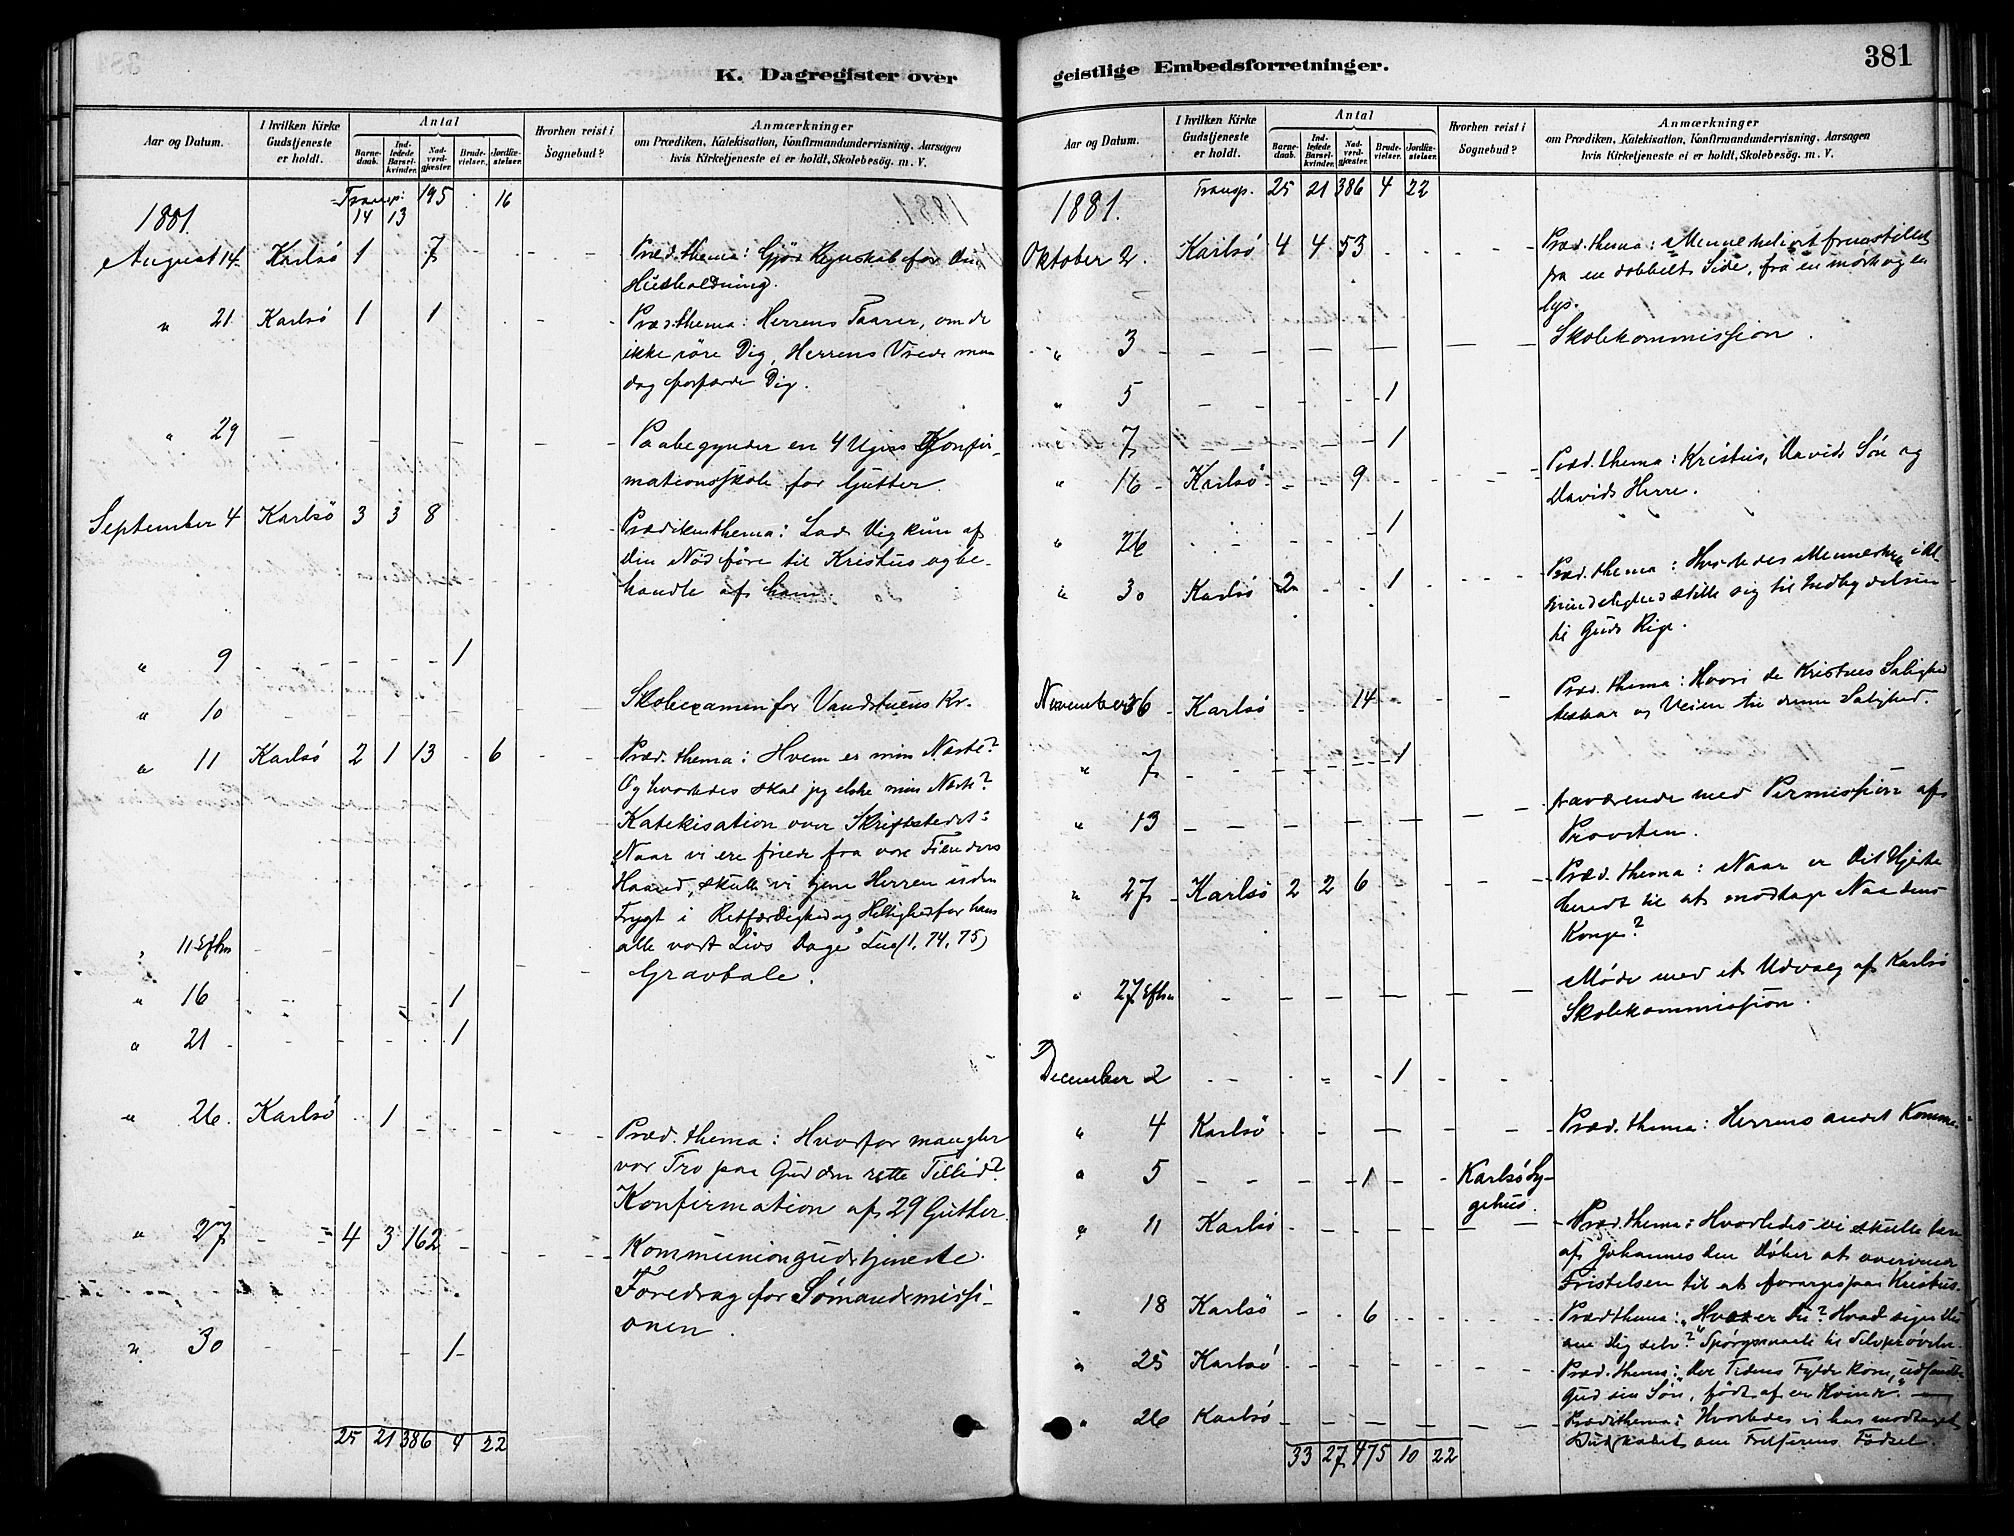 K. Dagregister over
Aar og Datum.
I hvilken Kirke Gudstjeneste er holdt.
Antal
Barnedaab.
Indledede Barselkvinder.
Nadverdgjæster.
Brudevielser.
Jordfæstelser.
Hvorhen reist i Sognebud?
Anmærkninger
om Prædiken, Katekisation, Konfirmandundervisning, Aarsagen
hvis Kirketjeneste ei er holdt, Skolebesög. m. V.
1881. Transp: 14 13 195 16
August 14 Karlsö 1 7 Præd. thema: Gjör Regnskab for din
Husholdning.
" 21 Karlsö 1 1 Præd. thema: Herrens Taarer, om de
ikke röre Dig, Herrens Vrede maa
dog forfærde Dig.
" 29 Paabegynder en 4 Ugers Konfir-
mationsskole for Gutter.
September 4 Karlsö 3 3 8 Prædikenthema: Lad Dig kun af
Din Nöd före til Kristus og be-
handle af ham.
" 9 1
" 10 Skoleexamen for Vandstuens Kr.
" 11 Karlsö 2 1 13 6 Præd. thema: Hvem er min Næste?
Og hvorledes skal jeg elske min Næste?
Katekisation over Skriftstedet:
"Naar vi ere friede fra vore Fienders
Haand, skulle vi tjene Herren uden
Frygt i Retfærdighed og Hellighed for ham
alle vort Livs Dage" Luc (1, 74, 75)
" 11 Efm Gravtale.
" 16 1
" 21 1
" 26 Karlsö 1 Præd. thema: Hvorfor mangler
vor Tro paa Gud den rette Tillid?
Konfirmation af 29 Gutter.
" 27 4 3 162 Kommuniongudstjeneste.
Foredrag for Sömandsmissi-
onen.
" 30 1
25 21 386 4 22
geistlige Embedsforretninger.
381
Aar og Datum.
I hvilken Kirke Gudstjeneste er holdt.
Antal
Barnedaab.
Indledede Barselkvinder.
Nadverdgjæster.
Brudevielser.
Jordfæstelser.
Hvorhen reist i Sognebud?
Anmærkninger
om Prædiken, Katekisation, Konfirmandundervisning, Aarsagen
hvis Kirketjeneste ei er holdt, Skolebesög. m. V.
1881. Transp. 25 21 386 4 22
Oktober 2. Karlsö 4 4 53 Præd. thema: Menneskelivet fremstillet
fra en dobbelt Side, fra en mörk og en
lys.
" 3 Skolekommission.
" 5 1
" 7 1
" 16 Karlsö 9 Præd. thema: Kristus, Davids Sön og
Davids Herre.
" 26 1
" 30 Karlsö 2 1 Præd. thema: Hvorledes Menneskene i Al
mindelighed stille sig til Indbydelsen
til Guds Rige.
November 6 Karlsö 14 Præd. thema: Hvori de Kristnes Salighed
bestaar og Veien til denne Salighed.
" 7 1
" 13 Fraværende med Permission af
Provsten.
" 27 Karlsö 2 2 6 Præd. thema: Naar er Dit Hjerte
beredt til at modtage Naadens
Konge?
" 27 Efm Möde med et Udvalg af Karlsö
Skolekommission.
December 2 1
" 4 Karlsö Præd. thema: Herrens andet Komme.
" 5 1 Karlsö Sy-
gehus.
" 11 Karlsö Præd. thema: Hvorledes vi skulle lære
af Johannes den Döber at overvinde
Fristelsen til at forarges paa Kristus.
" 18 Karlsö 6 Præd thema: "Hvo er Du? Hvad siger Du
om Dig selv?" Spörgsmaale til Selvprövelse.
" 25 Karlsö Præd. thema: "Der Tidens Fylde kom, udsendte
Gud sin Sön, född af en Kvinde."
" 26 Karlsö Præd. thema: Hvorledes vi har modtaget
Budskabet om Frelserens Födsel.
33 27 475 10 22